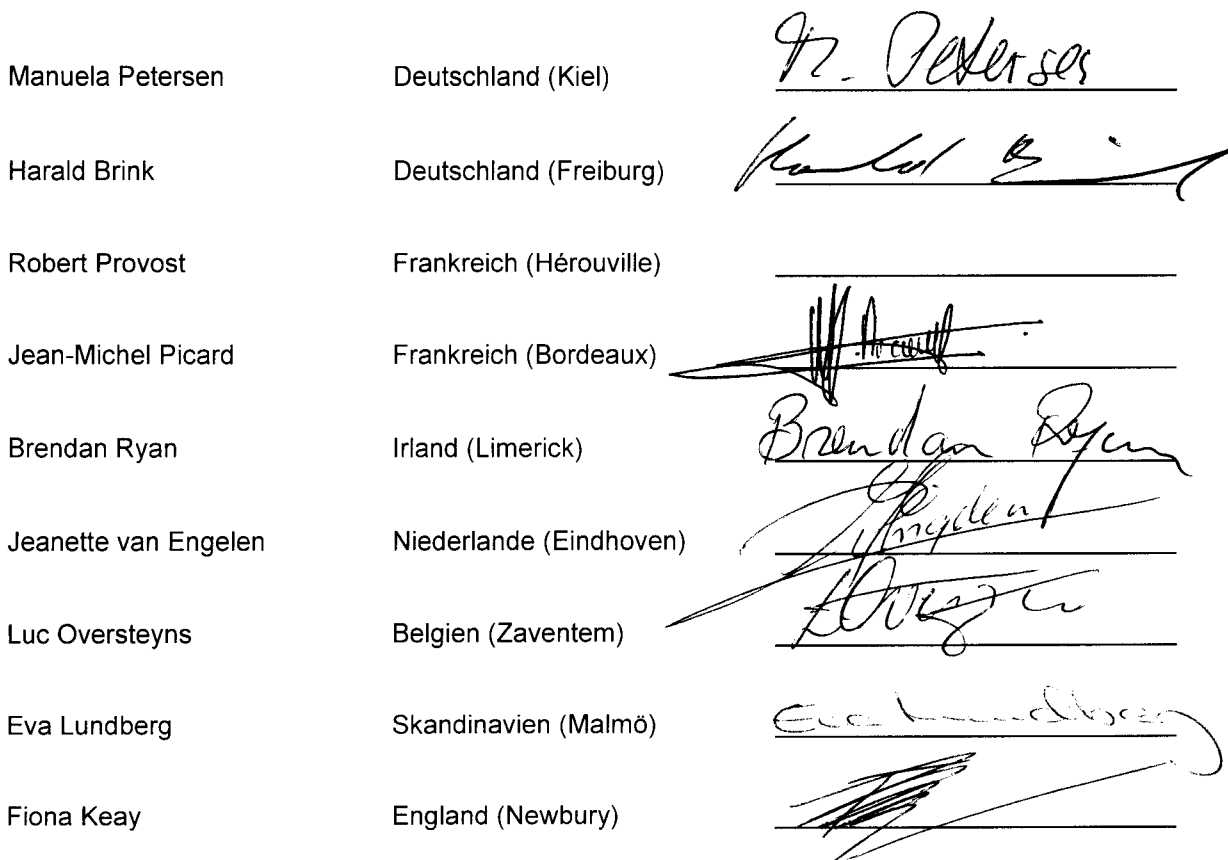 Manuela Petersen Deutschland (Kiel) M. Petersen
Harald Brink Deutschland (Freiburg) Harald Brink
Robert Provost Frankreich (Hérouville)
Jean-Michel Picard Frankreich (Bordeaux)
Brendan Ryan Irland (Limerick) Brendan Ryan
Jeanette van Engelen Niederlande (Eindhoven)
Luc Oversteyns Belgien (Zaventem)
Eva Lundberg Skandinavien (Malmö) Eva Lundberg
Fiona Keay England (Newbury)